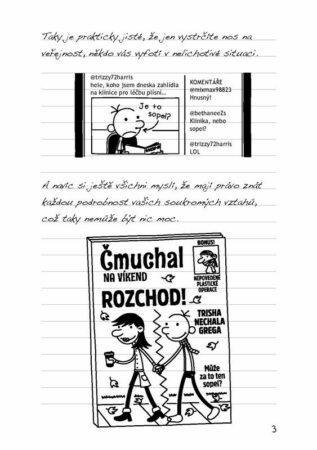 Taky je prakticky jisté, že jen vystrčíte nos na
veřejnost, někdo vás vyfotí v nelichotivé situaci.
@trizzy72harris
hele, koho jsem dneska zahlídla
na klinice pro léčbu plísní...
Je to
sopel?
KOMENTÁŘE
@mixmax98823
Hnusný!
@bethanee2s
Klinika, nebo
sopel?
@trizzy72harris
LOL
A navíc si ještě všichni myslí, že mají právo znát
každou podrobnost vašich soukromých vztahů,
což taky nemůže být nic moc.
Čmuchal
NA VÍKEND
BONUS!
NEPOVEDENÉ
PLASTICKÉ
OPERACE
ROZCHOD!
TRISHA
NECHALA
GREGA
Může
za to ten
sopel?
3